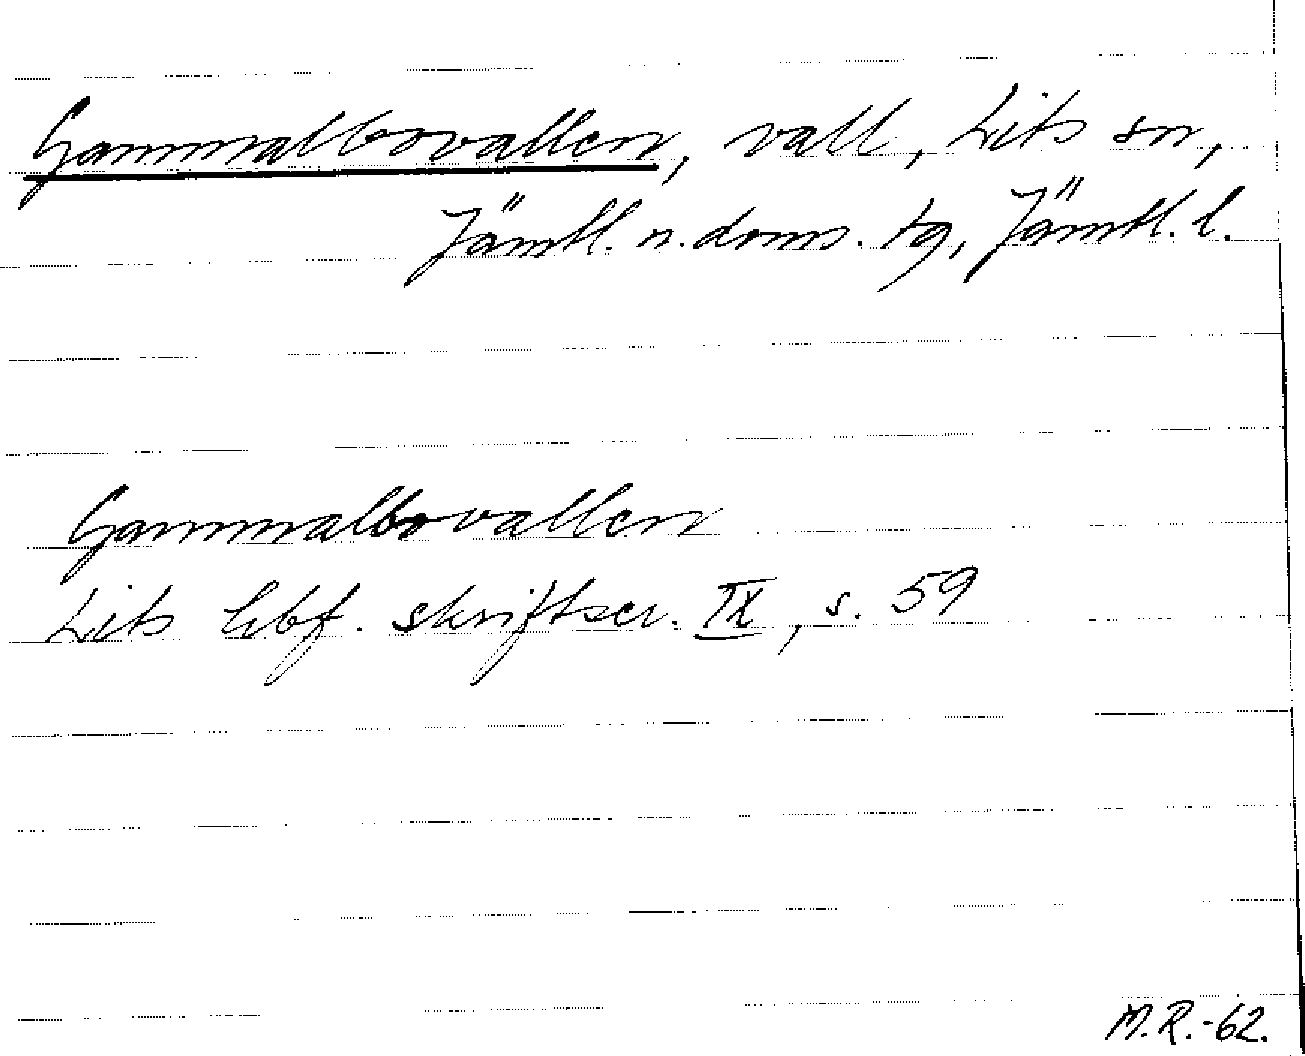 Gammalbovallen, vall, Lits sn,
Jämtl. n. doms. tg, Jämtl. l.
Gammalbovallen
Lits hbf. skriftser. IX, s. 59
M.R.-62.